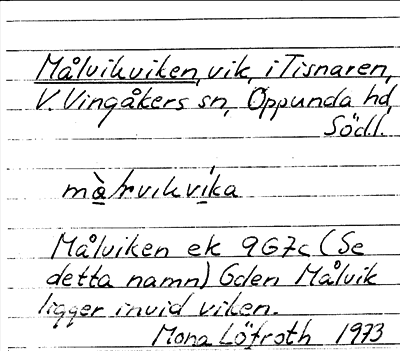 Målvikviken, vik, i Tisnaren,
V. Vingåkers sn, Oppunda hd,
Södl.
Målviken ek 9G7c (Se
detta namn) Gden Målvik
ligger invid viken.
Mona Löfroth 1973